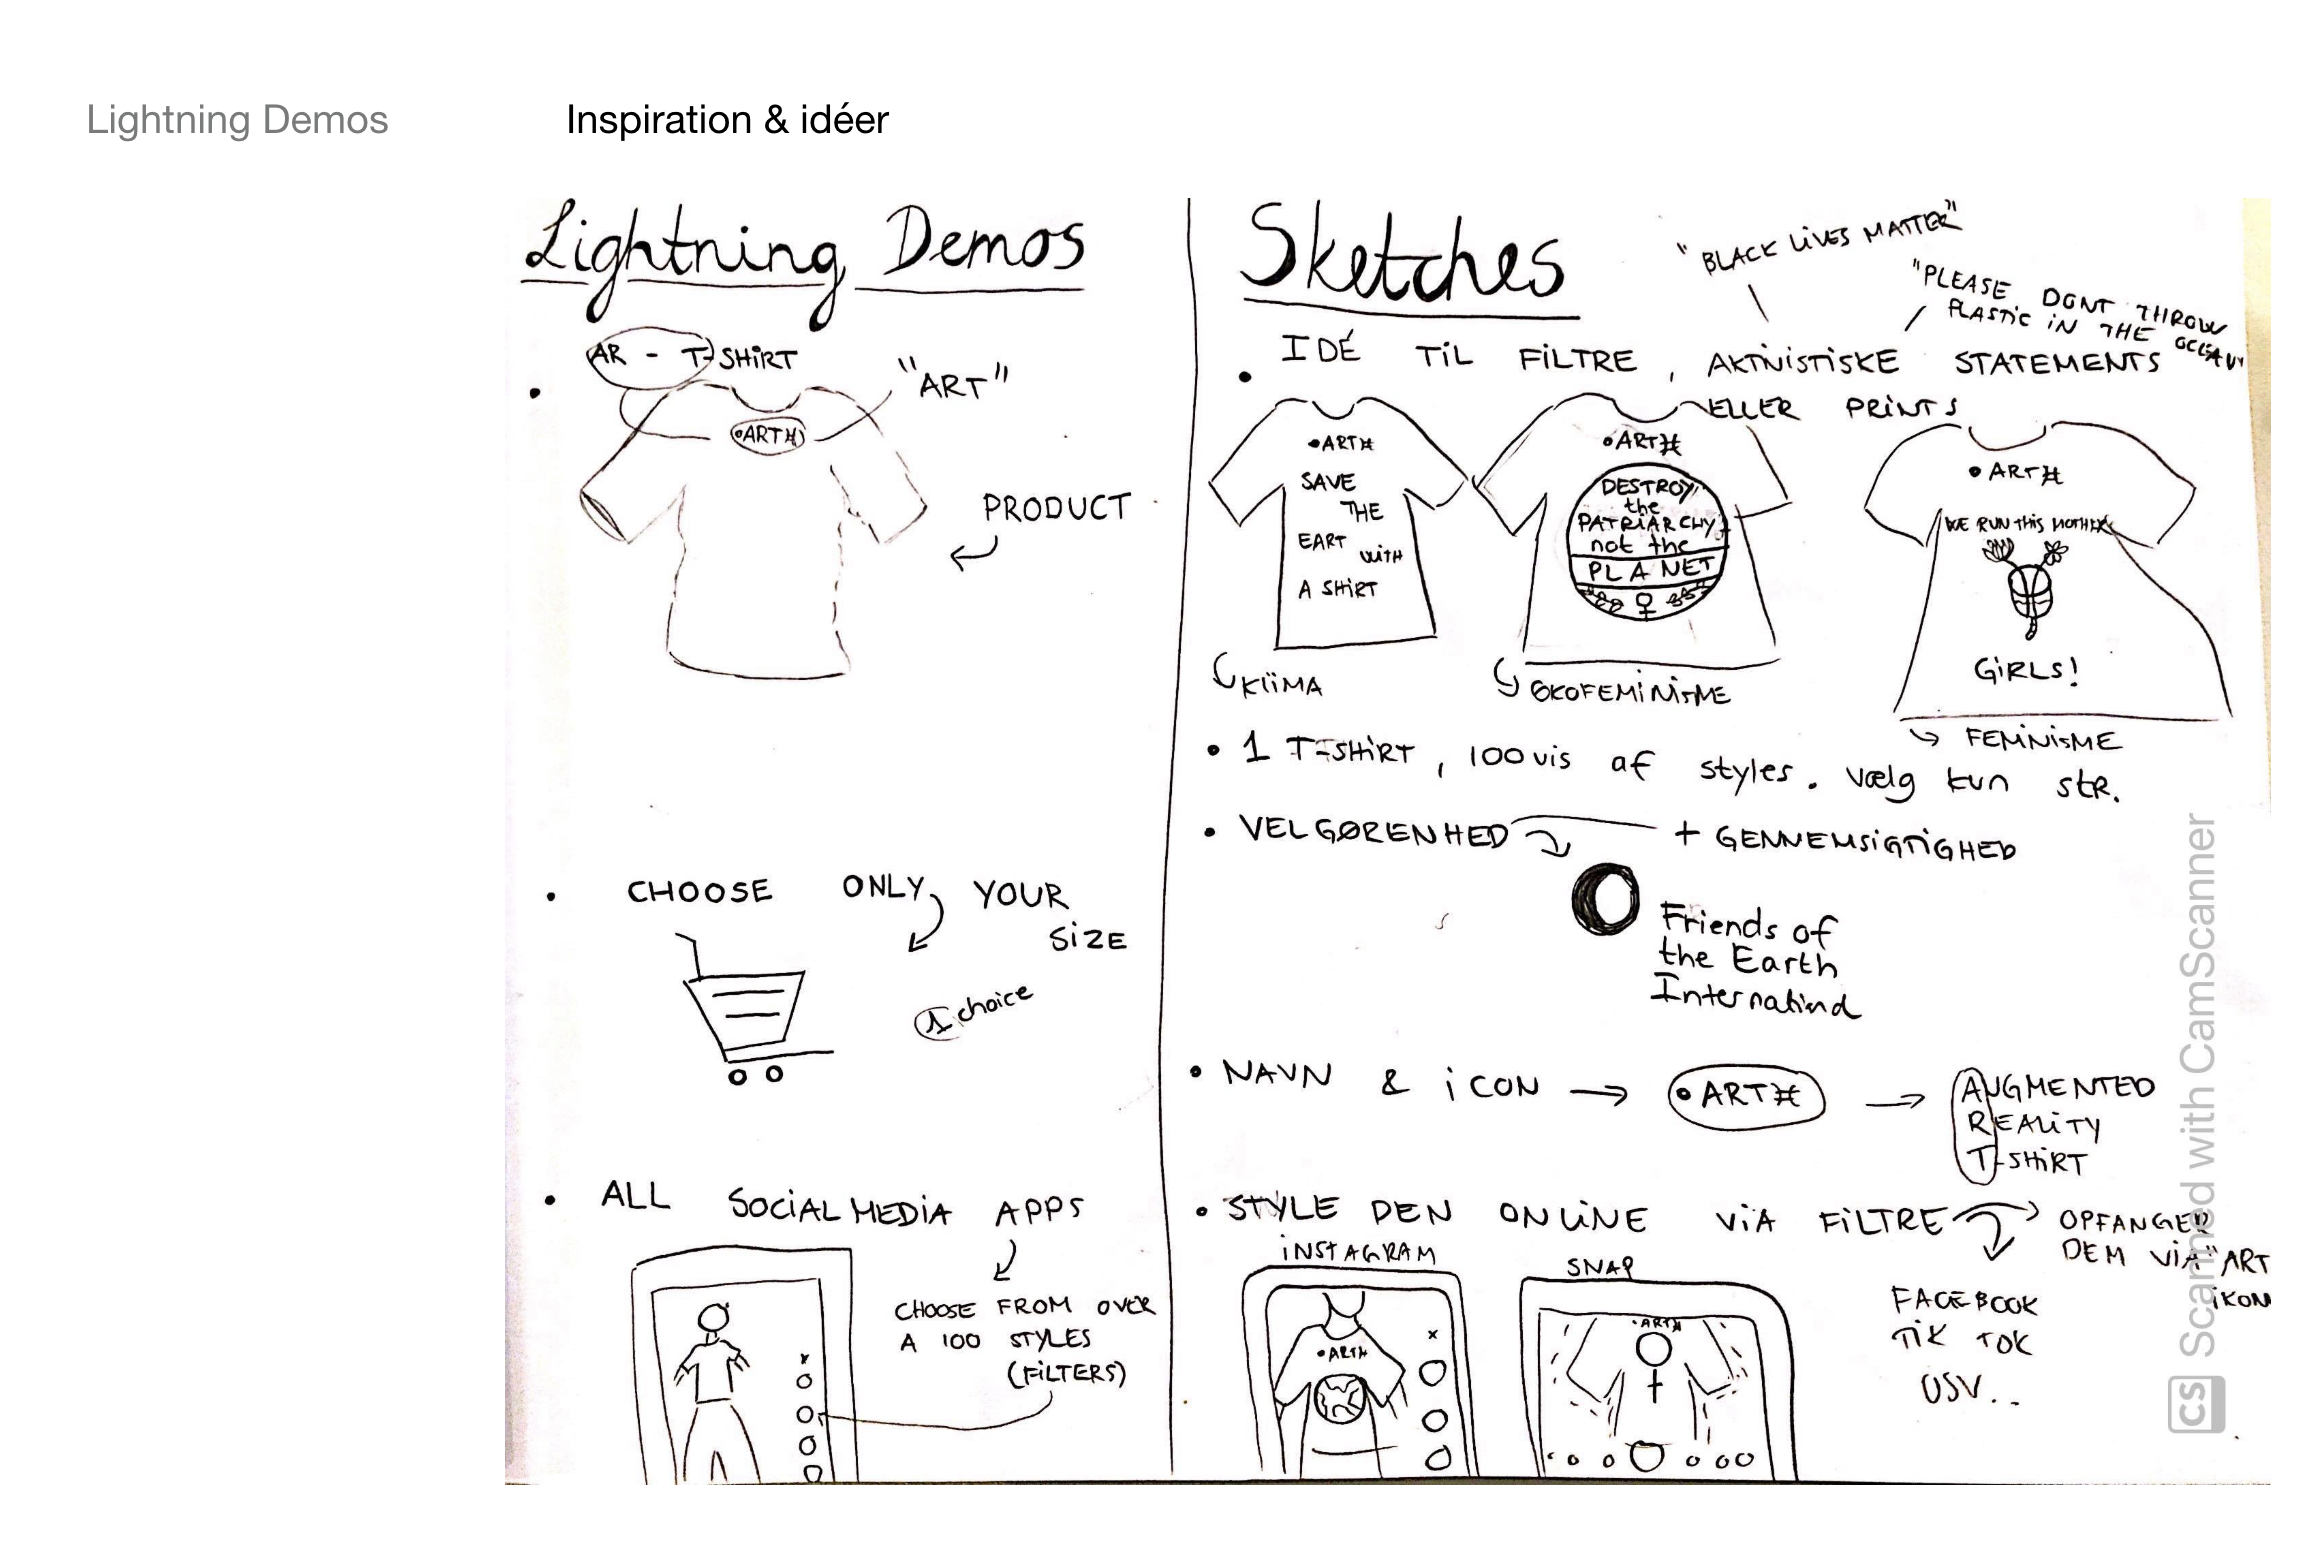 Lightning Demos
Inspiration & idéer
Lightning Demos
AR - T-SHIRT
"ART"
•ART#
PRODUCT
• CHOOSE ONLY YOUR
SIZE
1 choice
• ALL SOCIAL MEDIA APPS
CHOOSE FROM OVER
A 100 STYLES
(FILTERS)
Sketches
"BLACK LIVES MATTER"
"PLEASE DONT THROW
PLASTIC IN THE
OCEAN"
• IDÉ TIL FILTRE, AKTIVISTISKE STATEMENTS
ELLER PRINTS
•ART#
SAVE
THE
EART
WITH
A SHIRT
KLIMA
•ART#
DESTROY
the
PATRIARCHY
not the
PLANET
ØKOFEMINISME
•ART#
WE RUN THIS MOTHER
GIRLS!
FEMINISME
• 1 T-SHIRT, 100 vis af styles. Vælg kun str.
• VELGØRENHED + GENNEMSIGTIGHED
Friends of
the Earth
Internatind
• NAVN & ICON → •ART# → AUGMENTED
REALITY
T-SHIRT
• STYLE DEN ONLINE VIA FILTRE
OPFANGER
DEM VIA "ART
IKON
INSTAGRAM
•ART#
SNAP
•ART#
FACEBOOK
TIK TOK
USV...
CS Scanned with CamScanner